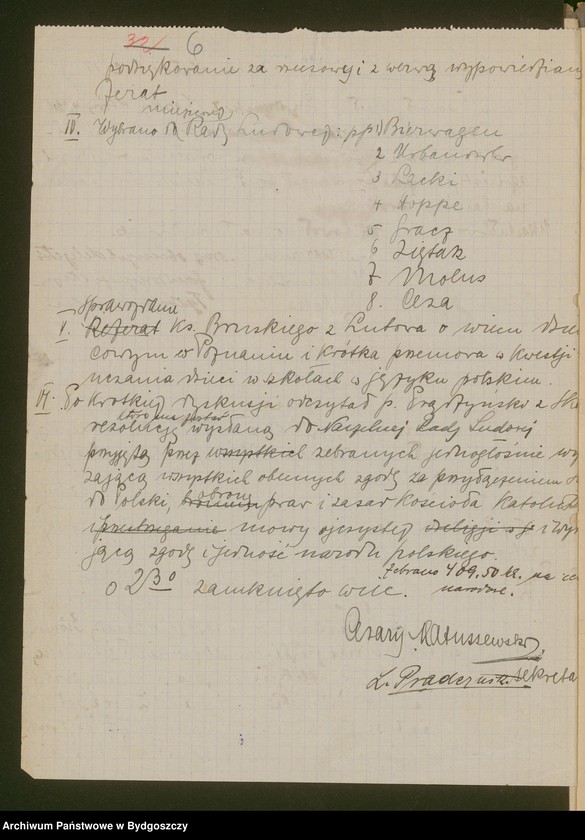 32. 6
podziękowanie za rzeczowy i z werwą wypowiedziany
ferat
miejscowej
IV. Wybrano do Rady Ludowej: pp. 1 Bierwagen
2 Urbanowski
3 Łącki
4 Hoppe
5 Gracz
6 Ziętak
7 Molus
8. Ceza
Sprawozdanie
V. Referat Ks. Bronskiego z Lutowa o wiecu dziel
cowym w Poznaniu i krótka przemowa w kwestji
uczania dzieci w szkołach w języku polskim.
VI. Po krótkiej dyskusji odczytał p. Prądzyński z
rezolucję wysłaną do Naczelnej Rady Ludowej
przyjętą przez wszystkich zebranych jednogłośnie wy
zającą wszystkich obecnych zgodę za przyłączeniem
do Polski, obronę praw i zasad Kościoła Katolick
i mowy ojczystej i wyr
jącą zgodę i jedność narodu polskiego.
Zebrano 409.50 M. na
narodowe.
o 2 30 zamknięto wiec.
Cezary Matuszewski
L. Prądzyński sekreta
Archiwum Państwowe w Bydgoszczy